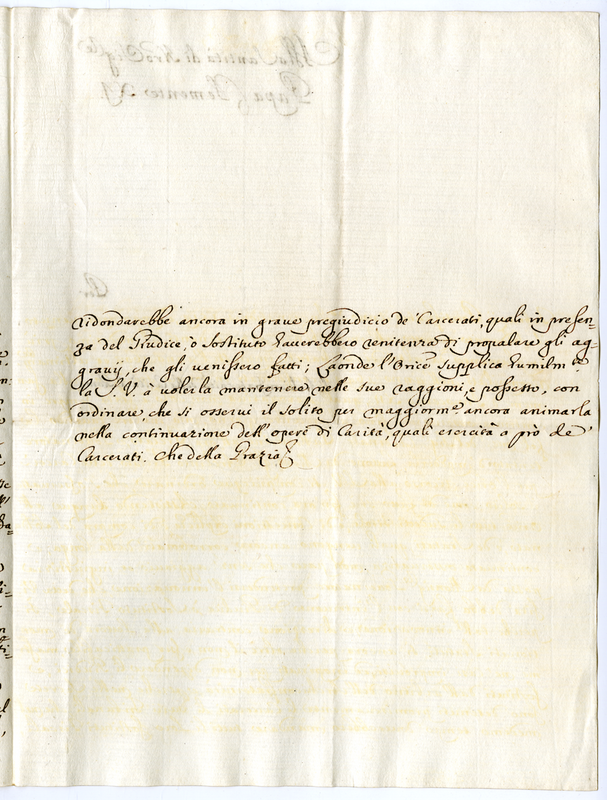 ridondarebbe ancora in grave pregiudicio de' Carcerati, quali in presen=
za del Giudice, ò sostituto haverebbero renitenza di propalare gli ag=
gravij, che gli venissero fatti; Laonde l'Orice supplica humilmte
la S. V. à volerla mantenere nelle sue raggioni, e possesso, con
ordinare, che si osservi il solito per maggiormte ancora animarla
nella continuazione dell'opere di Carità, quali esercita a prò de'
Carcerati. Che della Grazia